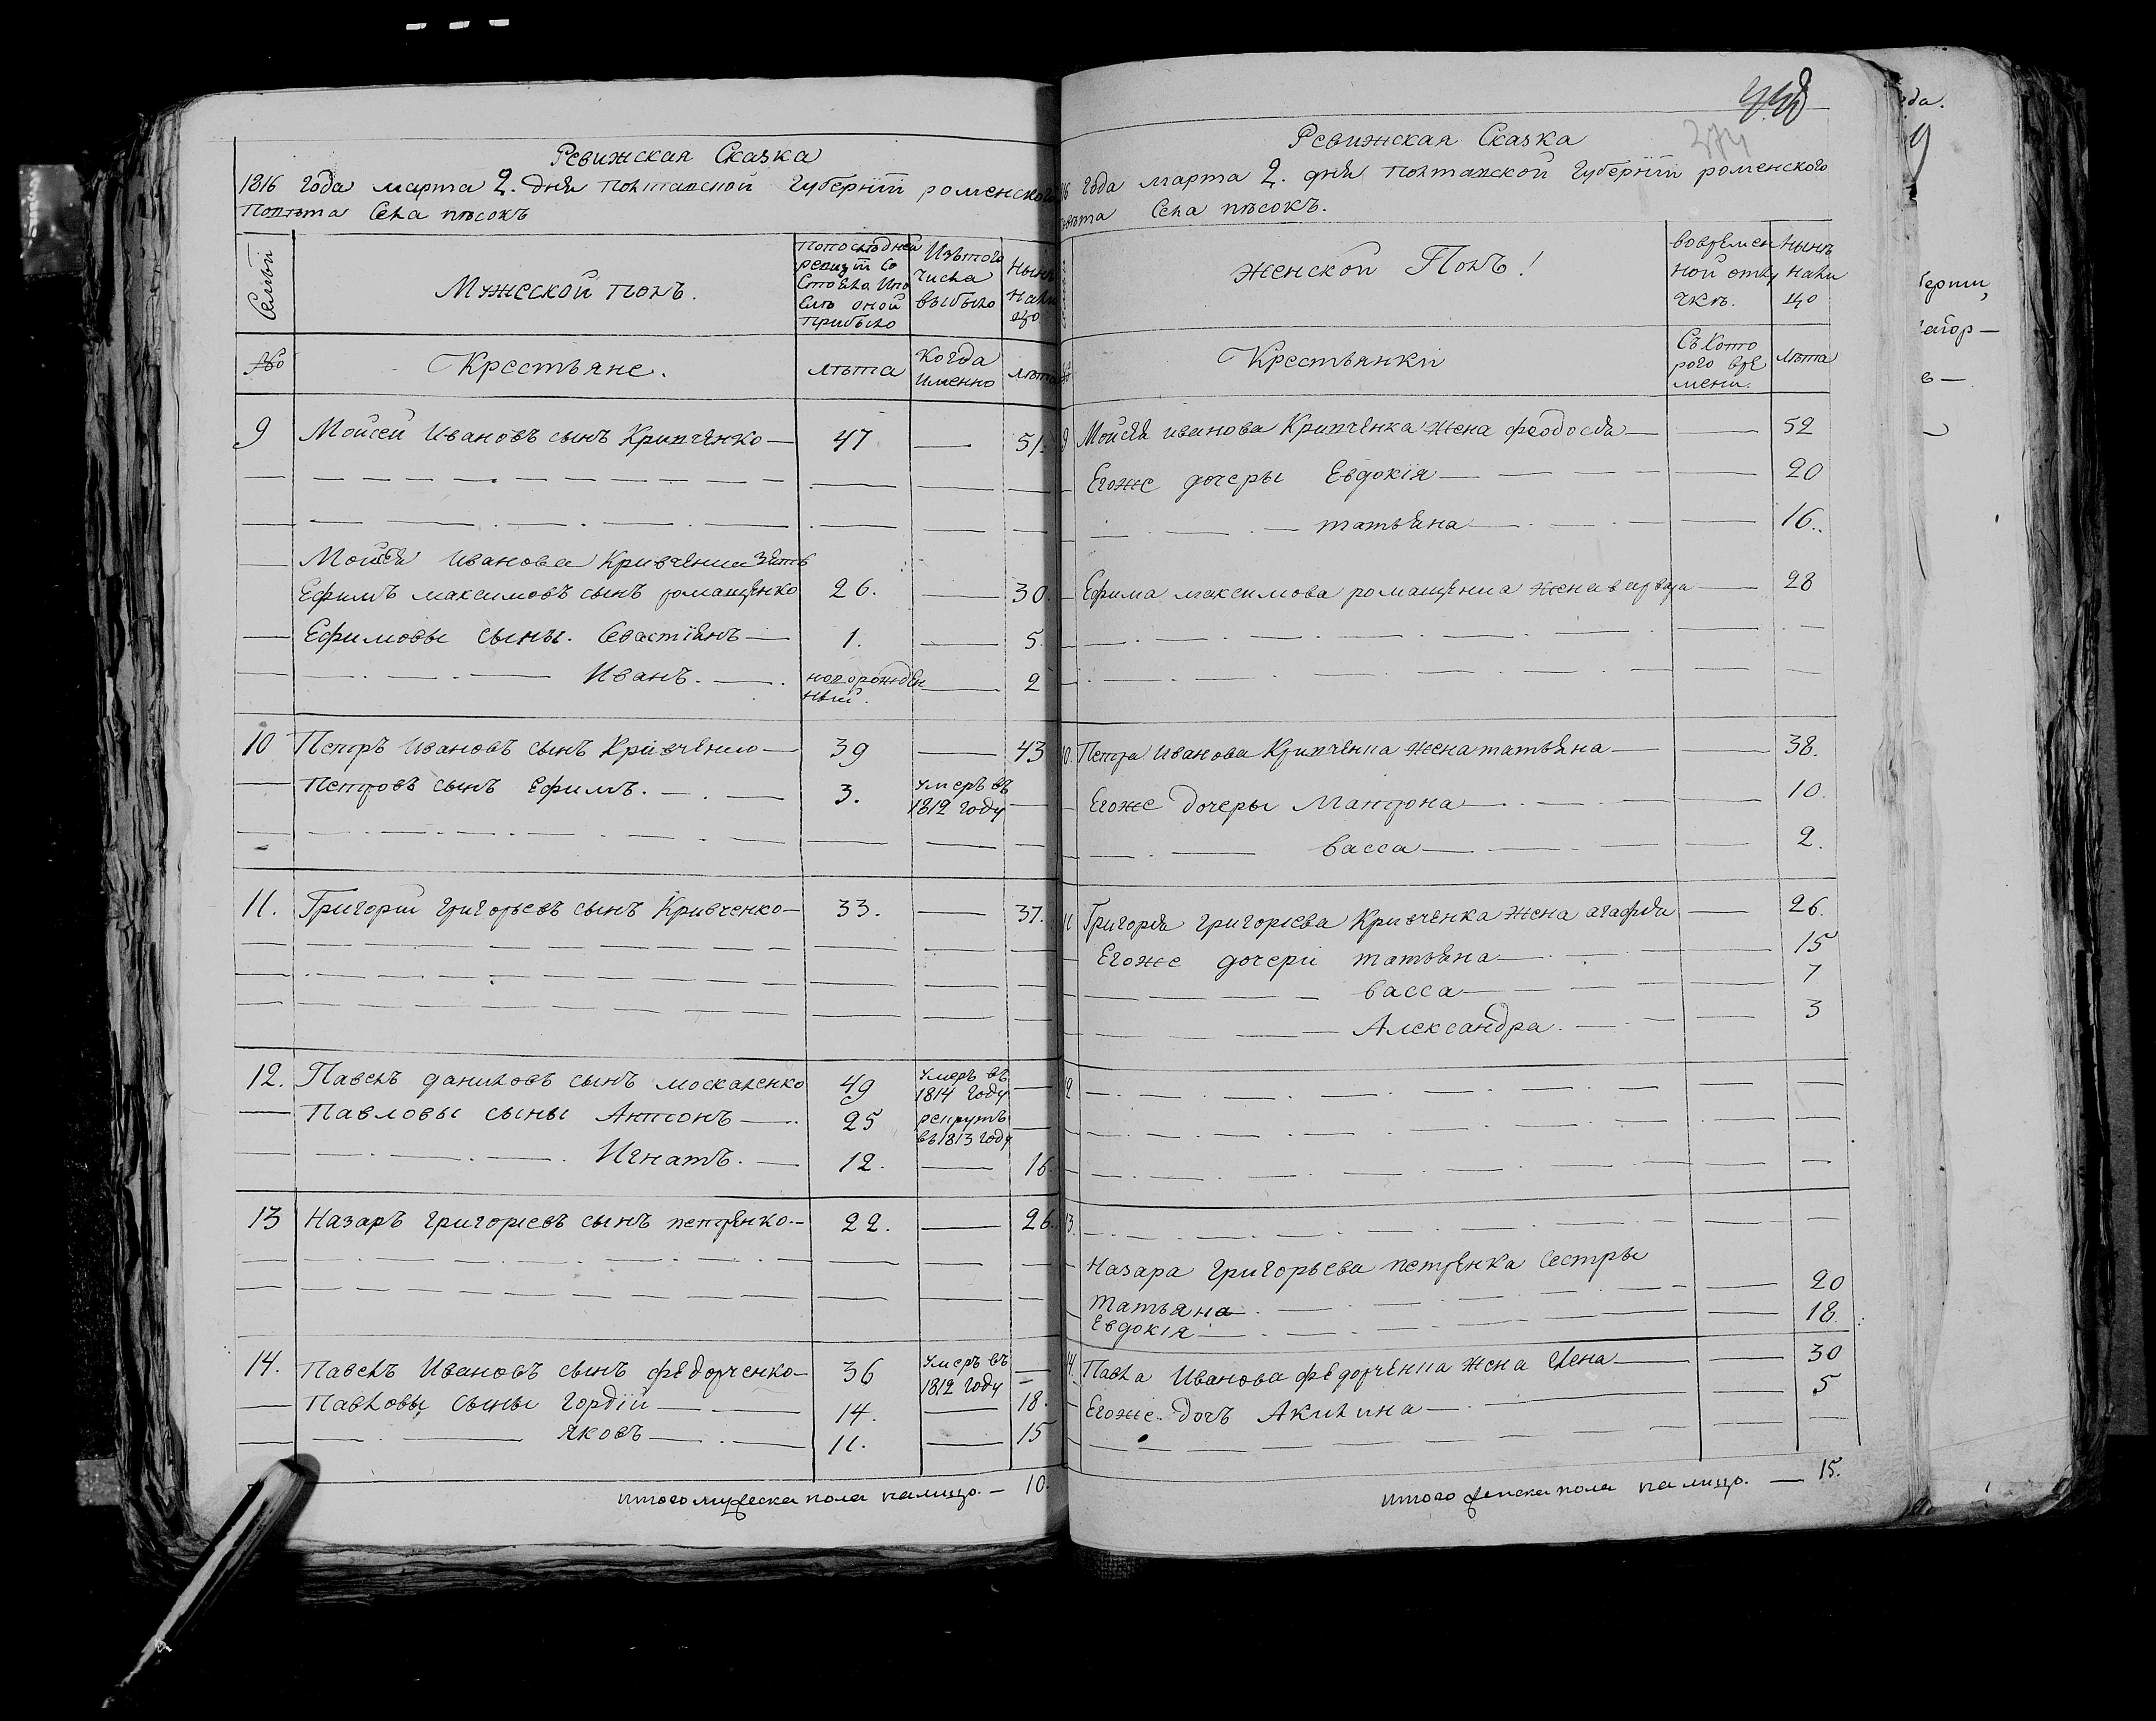 Ревижская Сказка
1816 года марта 2. дня полтавской Губерніи роменского
Повѣта Села пѣсокъ
Семьи
Мужеской полъ.
Попослѣдней ревизіи Со Стояло Ипо слѣ оной прибыло
Изътого числа выбыло
Нынѣ нали цо
№
Крестьяне.
лѣта
Когда именно
лѣта
9 Мойсей Ивановъ сынъ Кривченко — 47 — 51.
Мойсея Иванова Кривченка зять
Ефимъ максимовъ сынъ ромащенко 26. — 30.
Ефимовы сыны. Севастіянъ — 1. — 5.
Иванъ. — новорожден ный. — 2
10 Петръ Ивановъ сынъ Кривченко — 39 — 43
Петровъ сынъ Ефимъ. — 3. умеръ въ 1812 году —
11. Григорій григорьевъ сынъ Кривченко — 33. — 37.
12. Павелъ даниловъ сынъ москаленко 49 умеръ въ 1814 году —
Павловы сыны Антонъ — 25 рекрутъ въ 1813 году —
Игнатъ. — 12. — 16.
13 Назаръ григорієвъ сынъ петренко. — 22. — 26.
14. Павелъ Ивановъ сынъ федорченко — 36 умеръ въ 1812 году —
Павловы сыны Гордій — 14. — 18.
яковъ — 11. — 15
итого мужеска пола налицо. — 10.
448
274
Ревижская Сказка
года марта 2. дня полтавской Губерніи роменского
Села пѣсокъ.
Женской Полъ!
вовремен ной отлу чкѣ.
Нынѣ нали цо
Крестьянки
Съ Кото рого вре мени.
лѣта
9 Мойсея иванова Кривченка жена феодосія — 52
Егоже дочеры Евдокія — 20
татьяна — 16.
Ефима максимова ромащенка жена варвара — 28
10. Петра Иванова Кривченка жена татьяна — 38.
Егоже дочеры Матрона — 10.
васса — 2.
11 Григорія григорієва Кривченка жена агафія — 26.
Егоже дочери татьяна — 15
васса — 7
Александра. — 3
12
13.
Назара Григорьева петренка сестры
татьяна. — 20
Евдокія — 18.
14. Павла Иванова федорченка жена елена — 30
Егоже дочъ Акилина — 5
итого женска пола налицо. — 15.